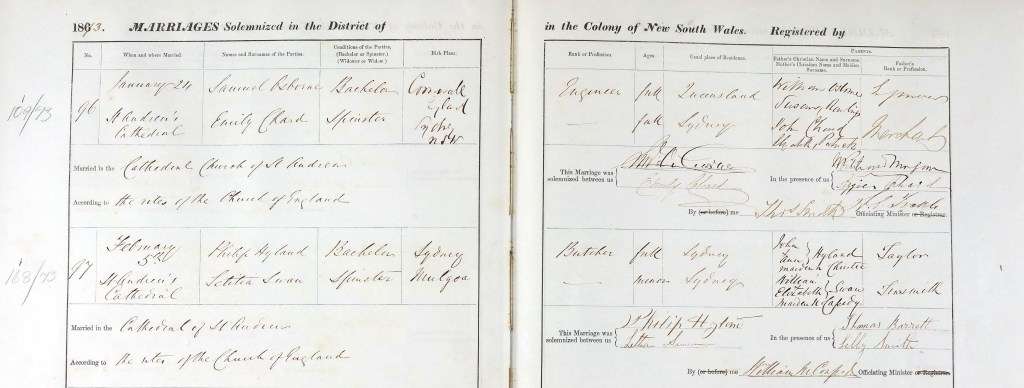 1873. MARRIAGES Solemnized in the District of
No. When and where Married. Names and Surnames of the Parties. Conditions of the Parties, (Bachelor or Spinster.) (Widower or Widow) Birth Place.
96 January 24 Samuel Osborne Bachelor Cornwall England
St Andrew's Cathedral Emily Chard Spinster Sydney NSW
Married in the Cathedral Church of St Andrew
According to the rites of the Church of England
168/73
97 February 5th Philip Hyland Bachelor Sydney
St Andrew's Cathedral Letitia Swan Spinster Mulgoa
Married in the Cathedral of St Andrew
According to the rites of the Church of England
in the Colony of New South Wales. Registered by
Rank or Profession. Ages. Usual place of Residence. PARENTS.
Father's Christian Name and Surname. Mother's Christian Name and Maiden Surname. Father's Rank or Profession.
Engineer full Queensland William Osborne
Susan
— full Sydney John Chard Merchant
Elizabeth
This Marriage was solemnized between us
Emily Chard
In the presence of us
Chard
By (or before) me Thos Smith Officiating Minister or Registrar.
Butcher full Sydney John Ann Hyland Taylor
maiden
— minor Sydney William Elizabeth Swan Tinsmith
maiden Cassidy
This Marriage was solemnized between us Philip Hyland
In the presence of us Thomas Barrett
Smith
By (or before) me William Officiating Minister or Registrar.